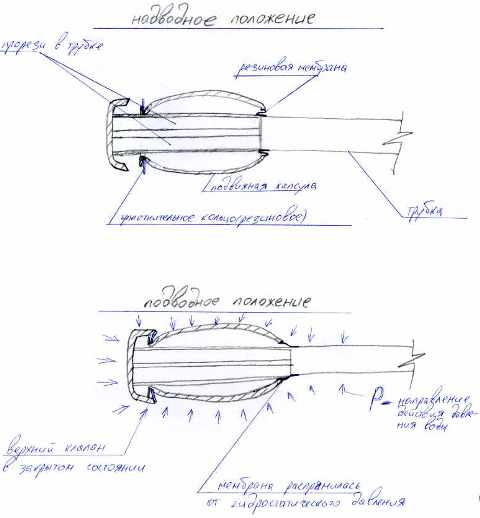 надводное положение
прорези в трубке
резиновая мембрана
подвижная капсула
уплотнительное кольцо(резиновое)
трубка
подводное положение
P - направление
действия давле-
ния воды
верхний клапан
в закрытом состоянии
мембрана распрямилась
от гидростатического давления